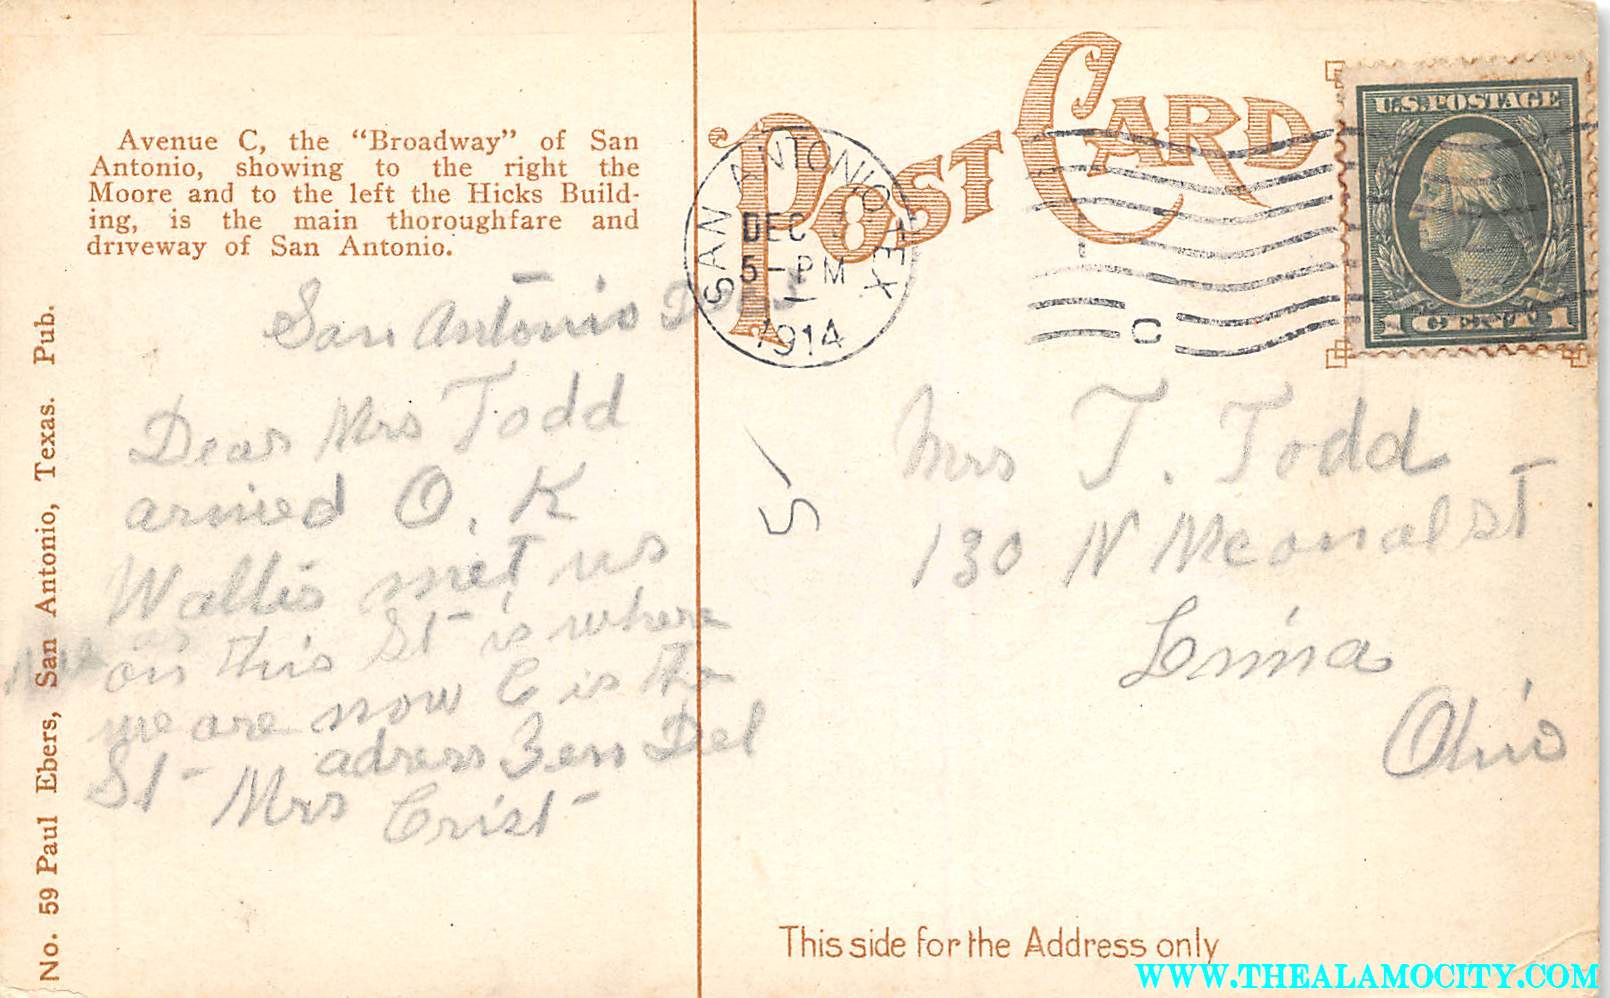 Avenue C, the "Broadway" of San
Antonio, showing to the right the
Moore and to the left the Hicks Build-
ing, is the main thoroughfare and
driveway of San Antonio.
No. 59 Paul Ebers, San Antonio, Texas. Pub.
San Antonio
Dear Mrs Todd
arrived O. K
Wallis met us
on this St is where
we are now C is the
St adress Zen Del
Mrs Crist
POST CARD
SAN ANTONIO TEX
DEC 3
5-PM
1914
C
U.S. POSTAGE
1 CENT 1
Mrs T. Todd
130 N Mconal st
Lima
Ohio
This side for the Address only
WWW.THEALAMOCITY.COM